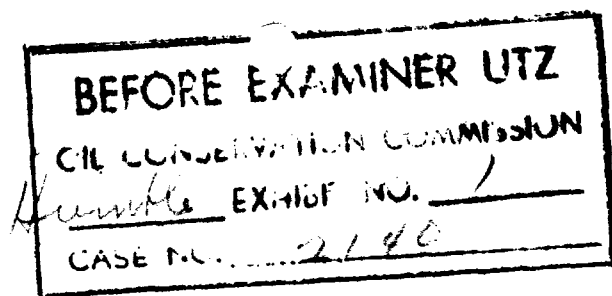 BEFORE EXAMINER UTZ
OIL CONSERVATION COMMISSION
Humble EXHIBIT NO. 1
CASE NO. 2140